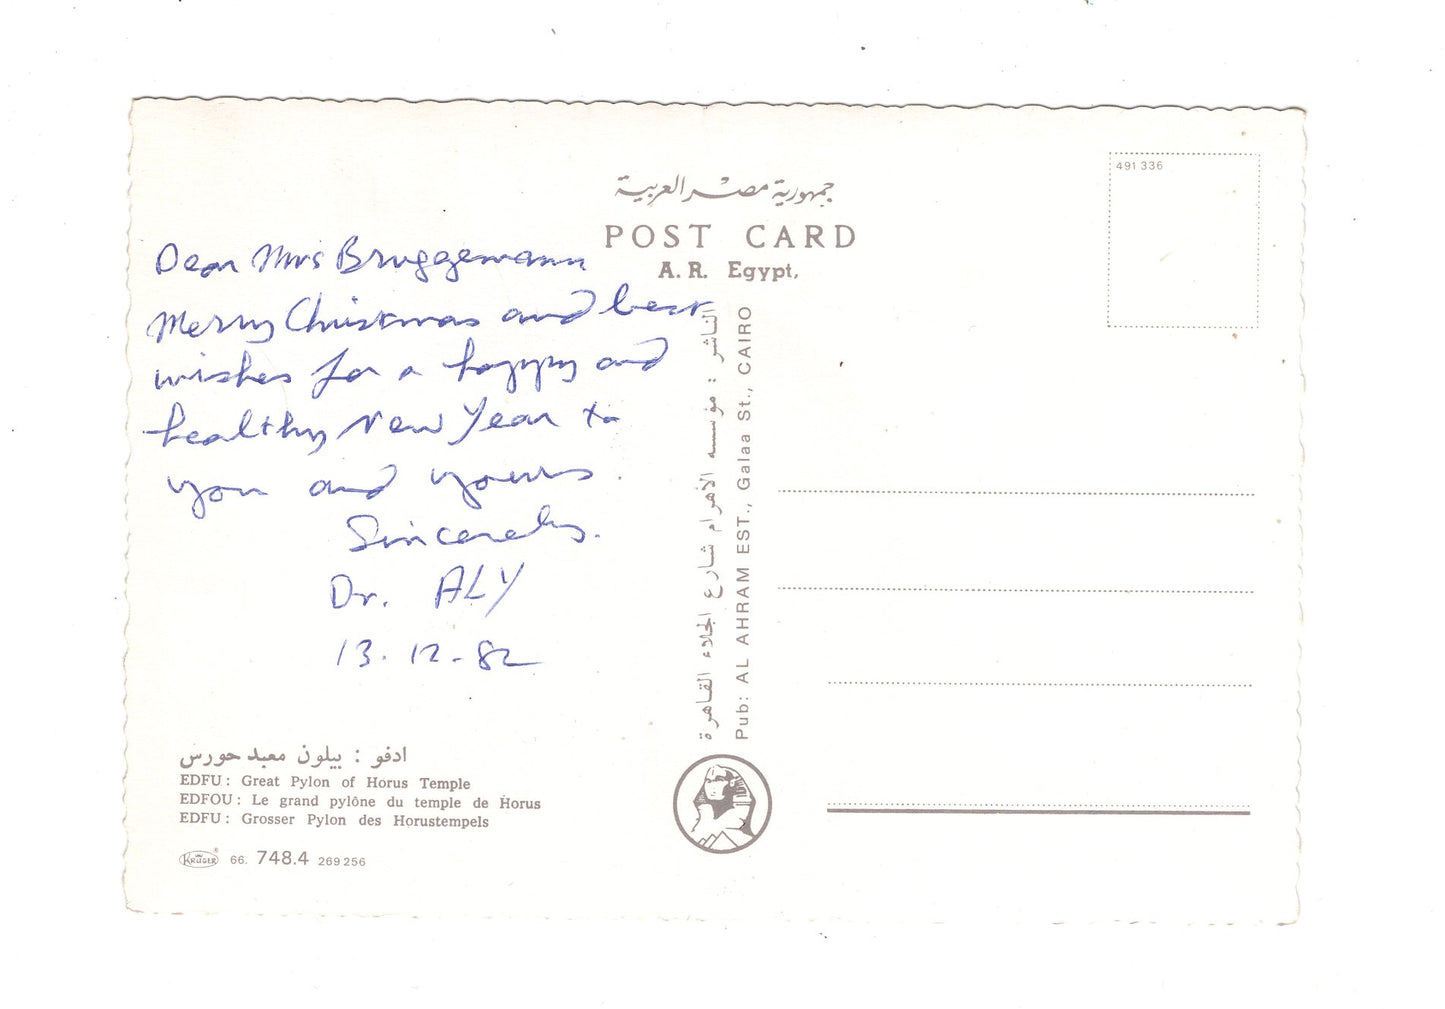 491 336
جمهورية مصر العربية
POST CARD
A. R. Egypt.
Dear Mrs Bruggemann
Merry Christmas and best
wishes for a happy and
healthy New Year to
you and yours.
Sincerely.
Dr. ALY
13-12-82
الناشر : مؤسسه الأهرام شارع الجلاء القاهرة
Pub: AL AHRAM EST., Galaa St., CAIRO
ادفو : بيلون معبد حورس
EDFU : Great Pylon of Horus Temple
EDFOU : Le grand pylône du temple de Horus
EDFU : Grosser Pylon des Horustempels
KRÜGER ® 66. 748.4 269 256